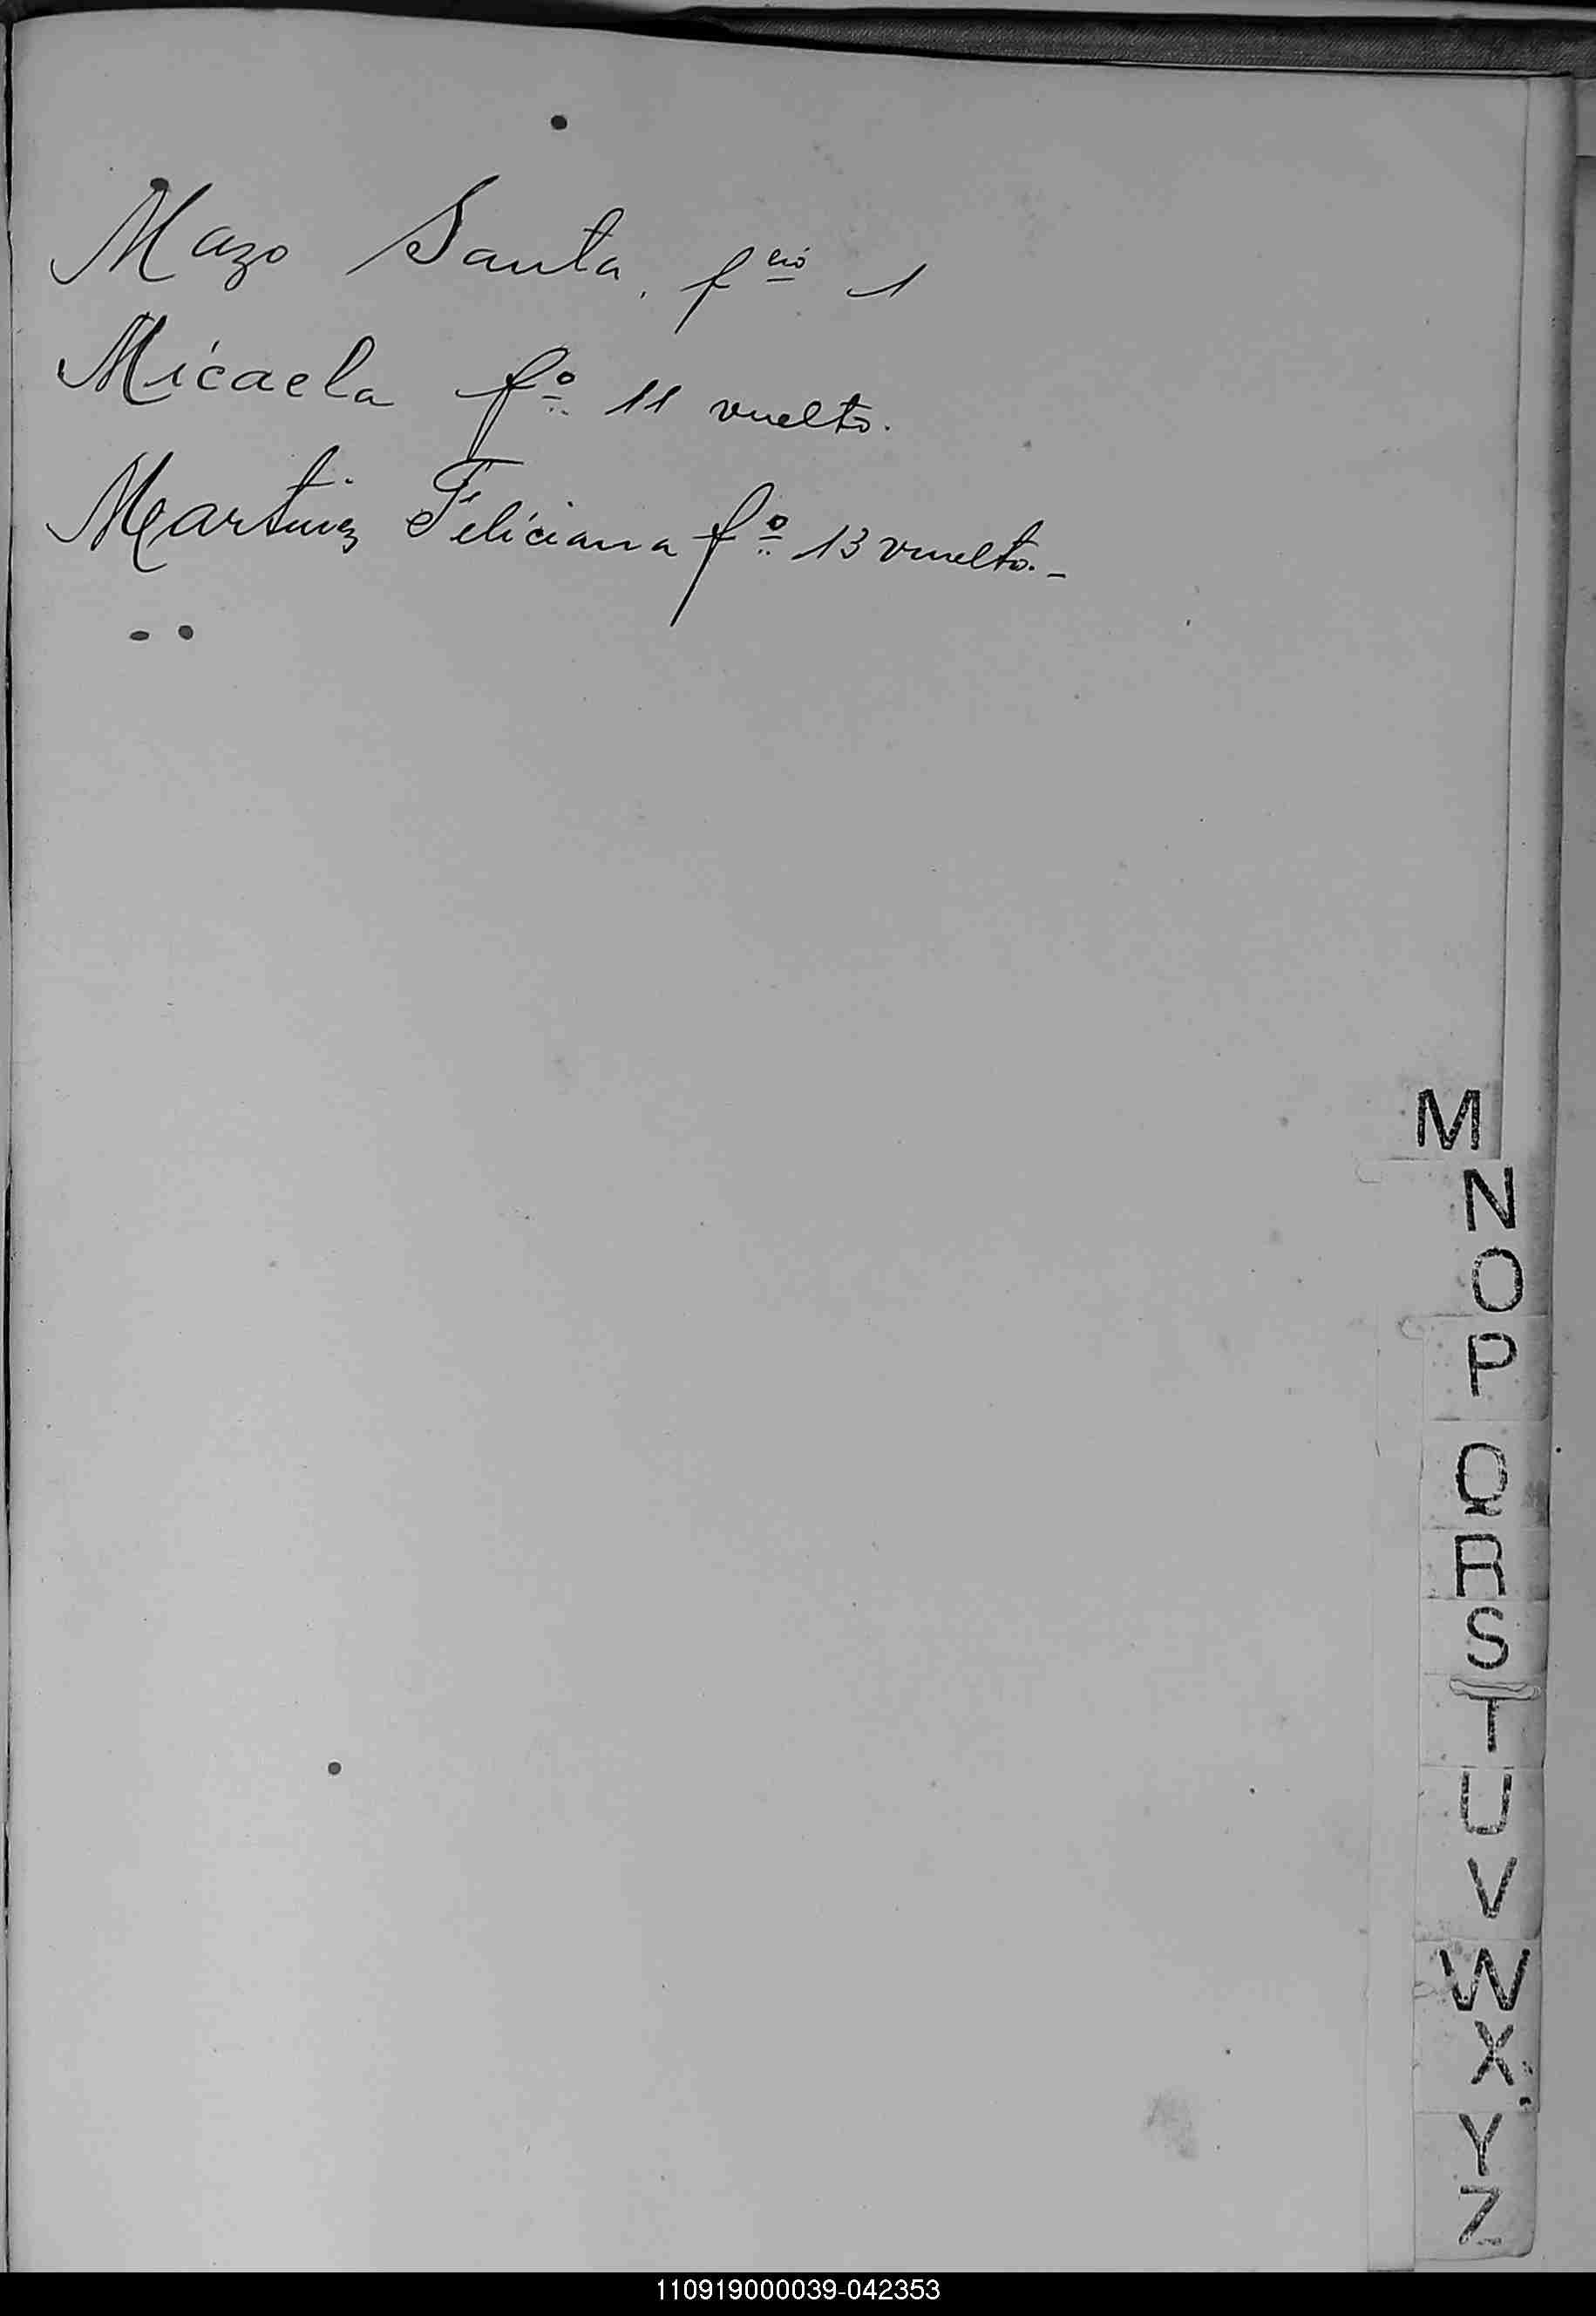 Mazo Santa. f eió 1
Micaela fº 11 vuelto.
Martinez Feliciana fº 13 vuelto.-
M
N
O
P
Q
R
S
T
U
V
W
X
Y
Z
110919000039-042353